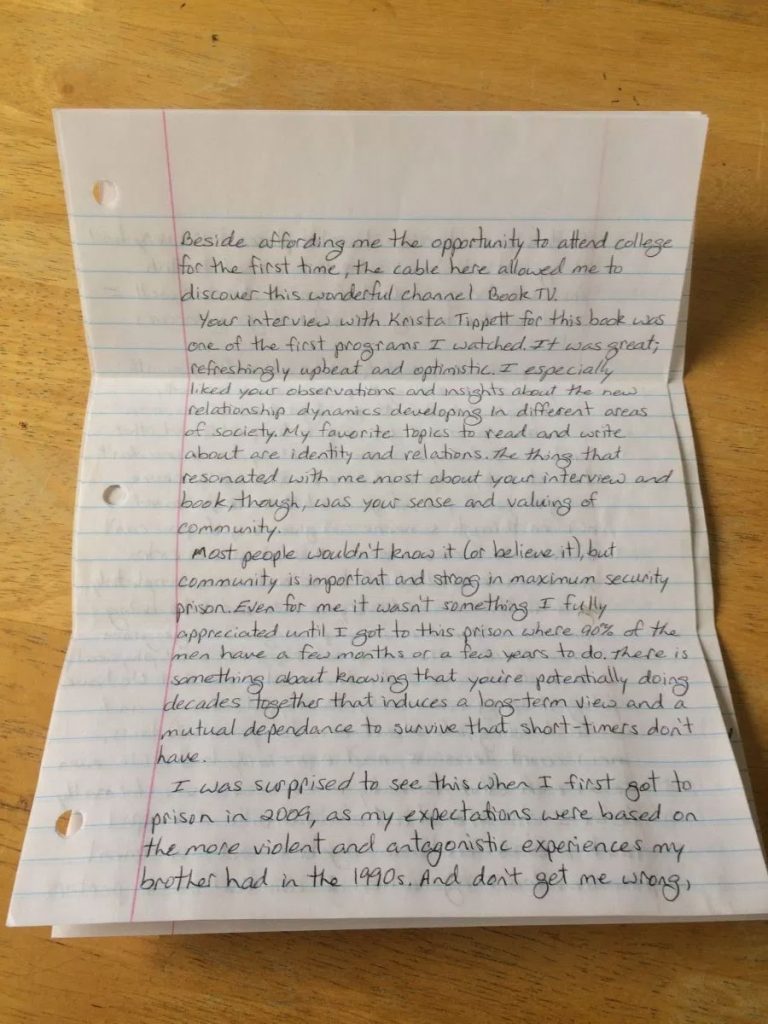 Beside affording me the opportunity to attend college
for the first time, the cable here allowed me to
discover this wonderful channel Book TV.
Your interview with Krista Tippett for this book was
one of the first programs I watched. It was great;
refreshingly upbeat and optimistic. I especially
liked your observations and insights about the new
relationship dynamics developing in different areas
of society. My favorite topics to read and write
about are identity and relations. The thing that
resonated with me most about your interview and
book, though, was your sense and valuing of
community.
Most people wouldn't know it (or believe it), but
community is important and strong in maximum security
prison. Even for me it wasn't something I fully
appreciated until I got to this prison where 90% of the
men have a few months or a few years to do. There is
something about knowing that you're potentially doing
decades together that induces a long-term view and a
mutual dependance to survive that short-timers don't
have.
I was surprised to see this when I first got to
prison in 2009, as my expectations were based on
the more violent and antagonistic experiences my
brother had in the 1990s. And don't get me wrong,